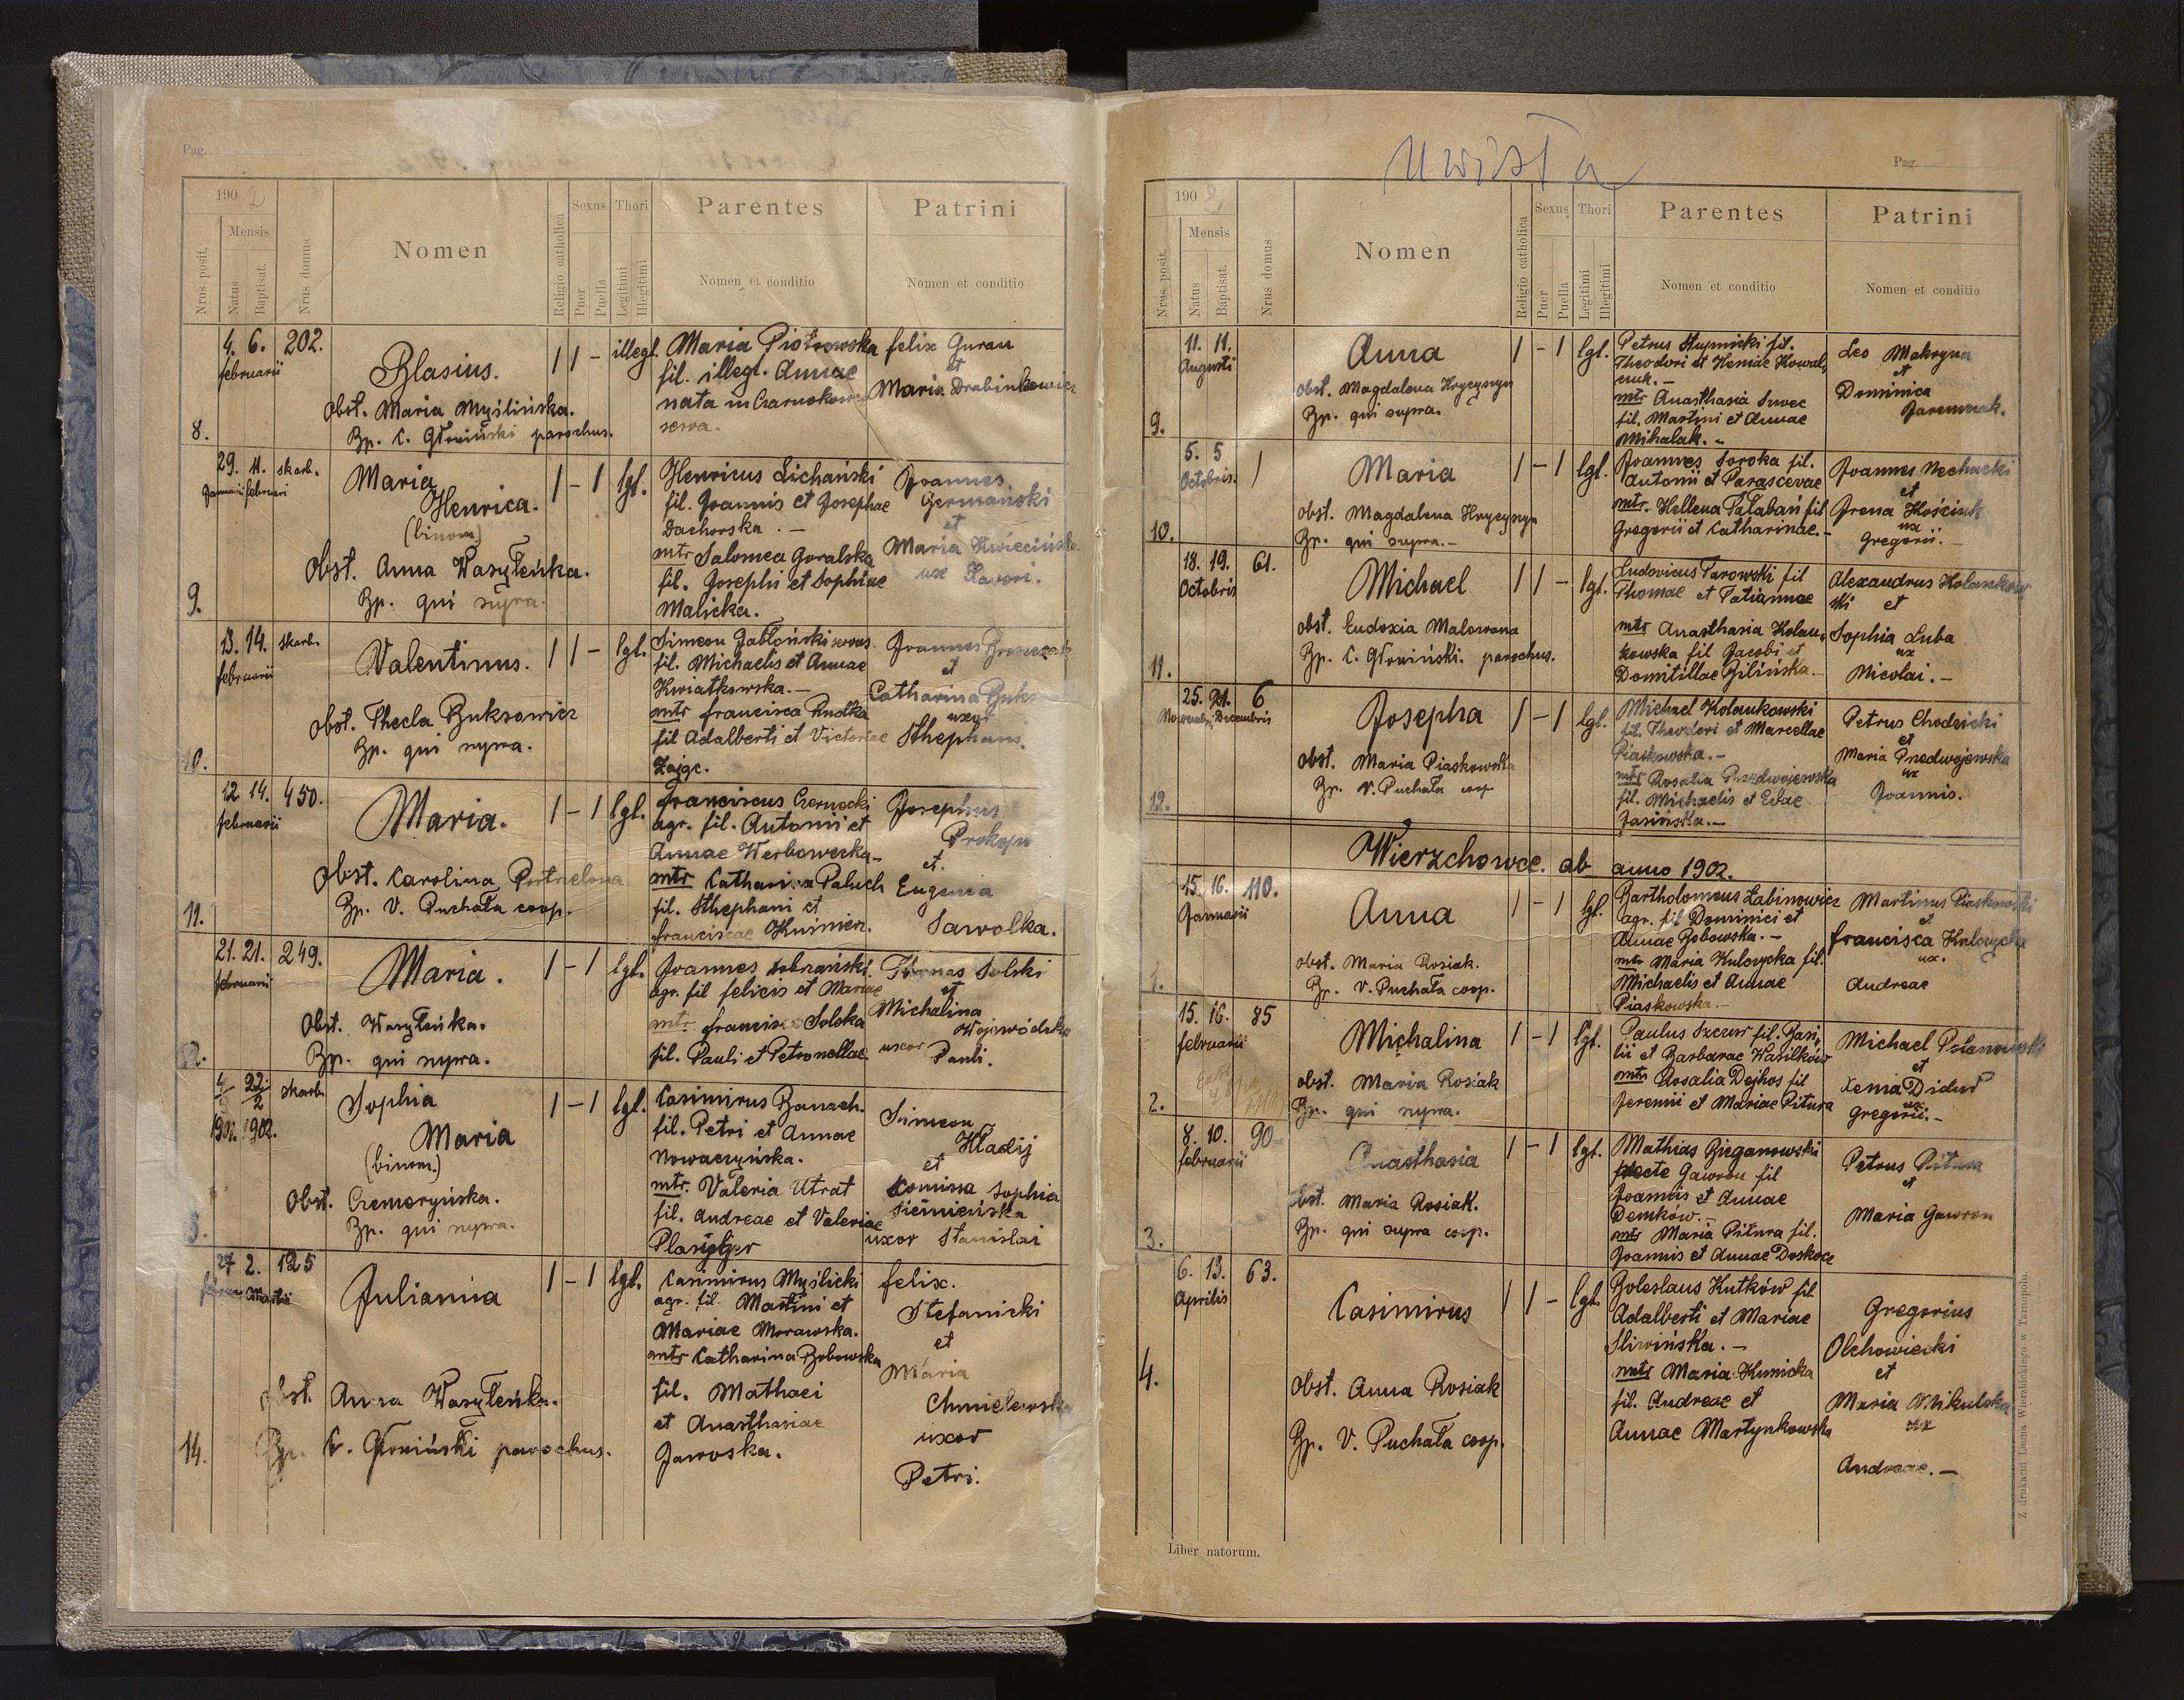 Pag.
190 2
Nrus posit.
Mensis
Natus
Baptisat.
Nrus domus
Nomen
Religio catholica
Sexus
Puer
Puella
Thori
Legitimi
Illegitimi
Parentes
Nomen et conditio
Patrini
Nomen et conditio
8.
4. 6. 202.
februarii
Blasius.
Obst. Maria Myślińska.
Bp. C. Głowiński parochus.
1 1 - illegl.
Maria Piotrowska
fil. illegl. Annae
nata in Czarnokow
serva.
felix Guran
et
Maria Drabinkowicz
9.
29. 11. skarb.
Januarii februari
Maria
Henrica.
(binom.)
Obst. Anna Wasyleńka.
Bp. qui supra.
1 - 1 lgl.
Henricus Lichański
fil. Joannis et Josephae
Dachorska. -
mtr Salomea Goralska
fil. Josephi et Sophiae
Malicka.
Joannes
Germański
et
Maria Kwiecińska
ux Xaveri.
10.
13. 14. skarb.
februarii
Valentinus.
Obst. Thecla Buksowicz
Bp. qui supra.
1 1 - lgl.
Simeon Jabłoński servus
fil. Michaelis et Annae
Kwiatkowska. -
mtr francisca Rudka
fil Adalberti et Victoriae
Zając.
Joannes
et
Catharina
uxor
Sthephani.
11.
12. 14. 450.
februarii
Maria.
Obst. Carolina
Bp. V. Puchała coop.
1 - 1 lgl.
franciscus Czernecki
agr. fil. Antonii et
Annae Werbowecka -
mtr Catharina Paluch
fil. Sthephani et
franciscae Kuśnierz.
Josephus
Prokopu
et.
Eugenia
Sawolka.
12.
21. 21. 249.
februarii
Maria.
Obst. Wasyleńka.
Bp. qui supra.
1 - 1 lgl.
Joannes Dobrzański.
agr. fil felicis et Mariae
mtr. francisca Solska
fil. Pauli et Petronellae
Thomas Solski
et
Michalina
Wojewódska
uxor Pauli.
22/2 skarb.
1902. 1902.
Sophia
Maria
(binom.)
Obst. Czemeryńska.
Bp. qui supra.
1 - 1 lgl.
Casimirus Banach.
fil. Petri et Annae
Nowaczyńska.
mtr. Valeria Utrat
fil. Andreae et Valeriae
Simeon
Hladij
et
Domina Sophia
Siemieńska
uxor Stanislai
14.
27 2. 125
Martii
Julianna
Obst. Anna Wasyleńka.
Bp. C. Głowiński parochus.
1 - 1 lgl.
Casimirus Myślicki
agr. fil. Martini et
Mariae Morawska.
mtr Catharina Bobowska
fil. Mathaei
et Anasthasiae
Jaroska.
felix.
Stefanicki
et
Maria
Chmielewska
uxor
Petri.
Uwisła
Pag.
190 2
Nrus posit.
Mensis
Natus
Baptisat.
Nrus domus
Nomen
Religio catholica
Sexus
Puer
Puella
Thori
Legitimi
Illegitimi
Parentes
Nomen et conditio
Patrini
Nomen et conditio
9.
11. 11.
Augusti
Anna
obst. Magdalena Hrycyszyn
Bp. qui supra.
1 - 1 lgl.
Petrus Słupnicki fil.
Theodori et Xeniae Kowal,
czuk. -
mtr Anasthasia Szwec
fil. Martini et Annae
Mihalak. -
Leo Makryna
et
Dominica
Jaremczak.
10.
5. 5 1
Octobris.
Maria
obst. Magdalena Hrycyszyn
Bp. qui supra. -
1 - 1 lgl.
Joannes Soroka fil.
Antonii et Parascevae
mtr. Hellena Bałaban fil
Gregorii et Catharinae. -
Joannes Nechacki
et
Irena Kościuk
ux
Gregorii. -
11.
18. 19. 61.
Octobris
Michael
obst. Eudoxia Malowana
Bp. C. Głowiński. parochus.
1 1 - lgl.
Ludovicus Parowski fil
Thomae et Tatiannae
mtr Anasthasia Kolan,
kowska fil Jacobi et
Domitillae Bilińska. -
Alexandrus Kolankow
ski et
Sophia Luba
ux
Nicolai. -
12.
25. 21. 6
Novembris Decembris
Josepha
obst. Maria Piaskowska
Bp. V. Puchała coop
1 - 1 lgl.
Michael Kolankowski
fil. Theodori et Marcellae
Piaskowska. -
mtr Rosalia Przedwojewska
fil. Michaelis et Evae
Jasińska. -
Petrus Chodzicki
et
Maria Przedwojewska
ux
Joannis.
Wierzchowce. ab anno 1902.
1.
15. 16. 110.
Januarii
Anna
obst. Maria Rosiak.
Bp. V. Puchała coop.
1 - 1 lgl.
Bartholomeus Łabinowicz
agr. fil Dominici et
Annae Bobowska. -
mtr Maria Kulczycka fil.
Michaelis et Annae
Piaskowska. -
Martinus Piaskowski
et
francisca Kulczycka
ux.
Andreae
2.
15. 16. 85
februarii
Michalina
obst. Maria Rosiak
Bp. qui supra.
1 - 1 lgl.
Paulus Szczur fil. Basi,
lii et Barbarae Wasilków
mtr Rosalia Dejhos fil
Jeremii et Mariae Pitura
Michael
et
Xenia Didur
ux
Gregorii. -
3.
8. 10. 90
februarii
Anasthasia
obst. Maria Rosiak.
Bp. qui supra coop.
1 - 1 lgl.
Mathias Bieganowski
recte Gawron fil
Joannis et Annae
Demków. -
mtr Maria Pitura fil.
Joannis et Annae Doskocz
Petrus Pitura
et
Maria Gawron
4.
6. 13. 63.
Aprilis
Casimirus
obst. Anna Rosiak
Bp. V. Puchała coop.
1 1 - lgl.
Boleslaus Kutków fil
Adalberti et Mariae
Śliwińska. -
mtr Maria Kunicka
fil. Andreae et
Annae Martynkowska
Gregorius
Olchowiecki
et
Maria Mikulska
ux
Andreae. -
Liber natorum.
Z drukarni Leona Wierzbickiego w Tarnopolu.